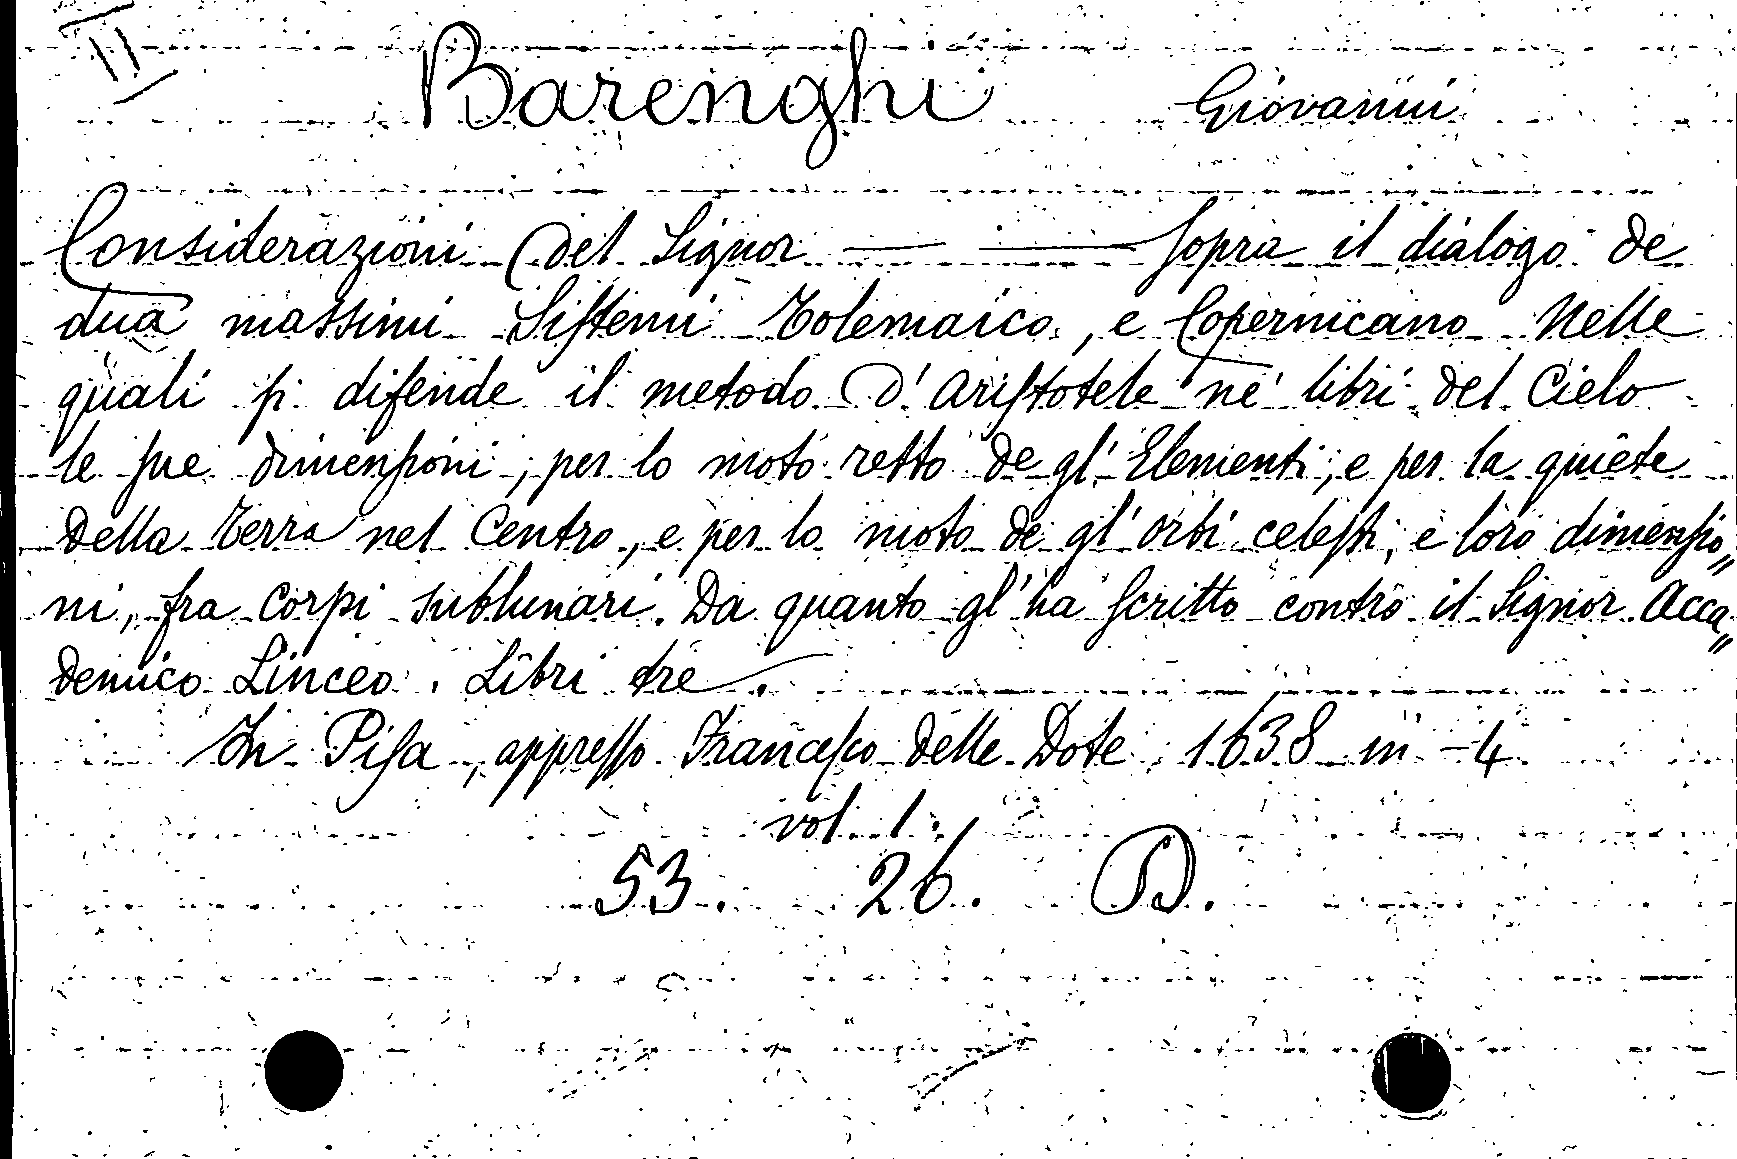 II
Barenghi Giovanni
Considerazioni Del Signor — — sopra il dialogo de
dua massimi Sistemi Tolemaico, e Copernicano Nelle
quali si difende il metodo D'Aristotele ne' libri del Cielo
le sue dimensioni, per lo moto retto de gl'Elementi, e per la quiete
Della Terra nel Centro, e per lo moto de gl'orbi celesti, e loro dimensio„
ni, fra Corpi sublunari. Da quanto gl'ha scritto contro il Signor Acca„
demico Linceo. Libri tre.
In Pisa, appresso Francesco delle Dote 1638 in -4
vol. 1.
53. 26. D.